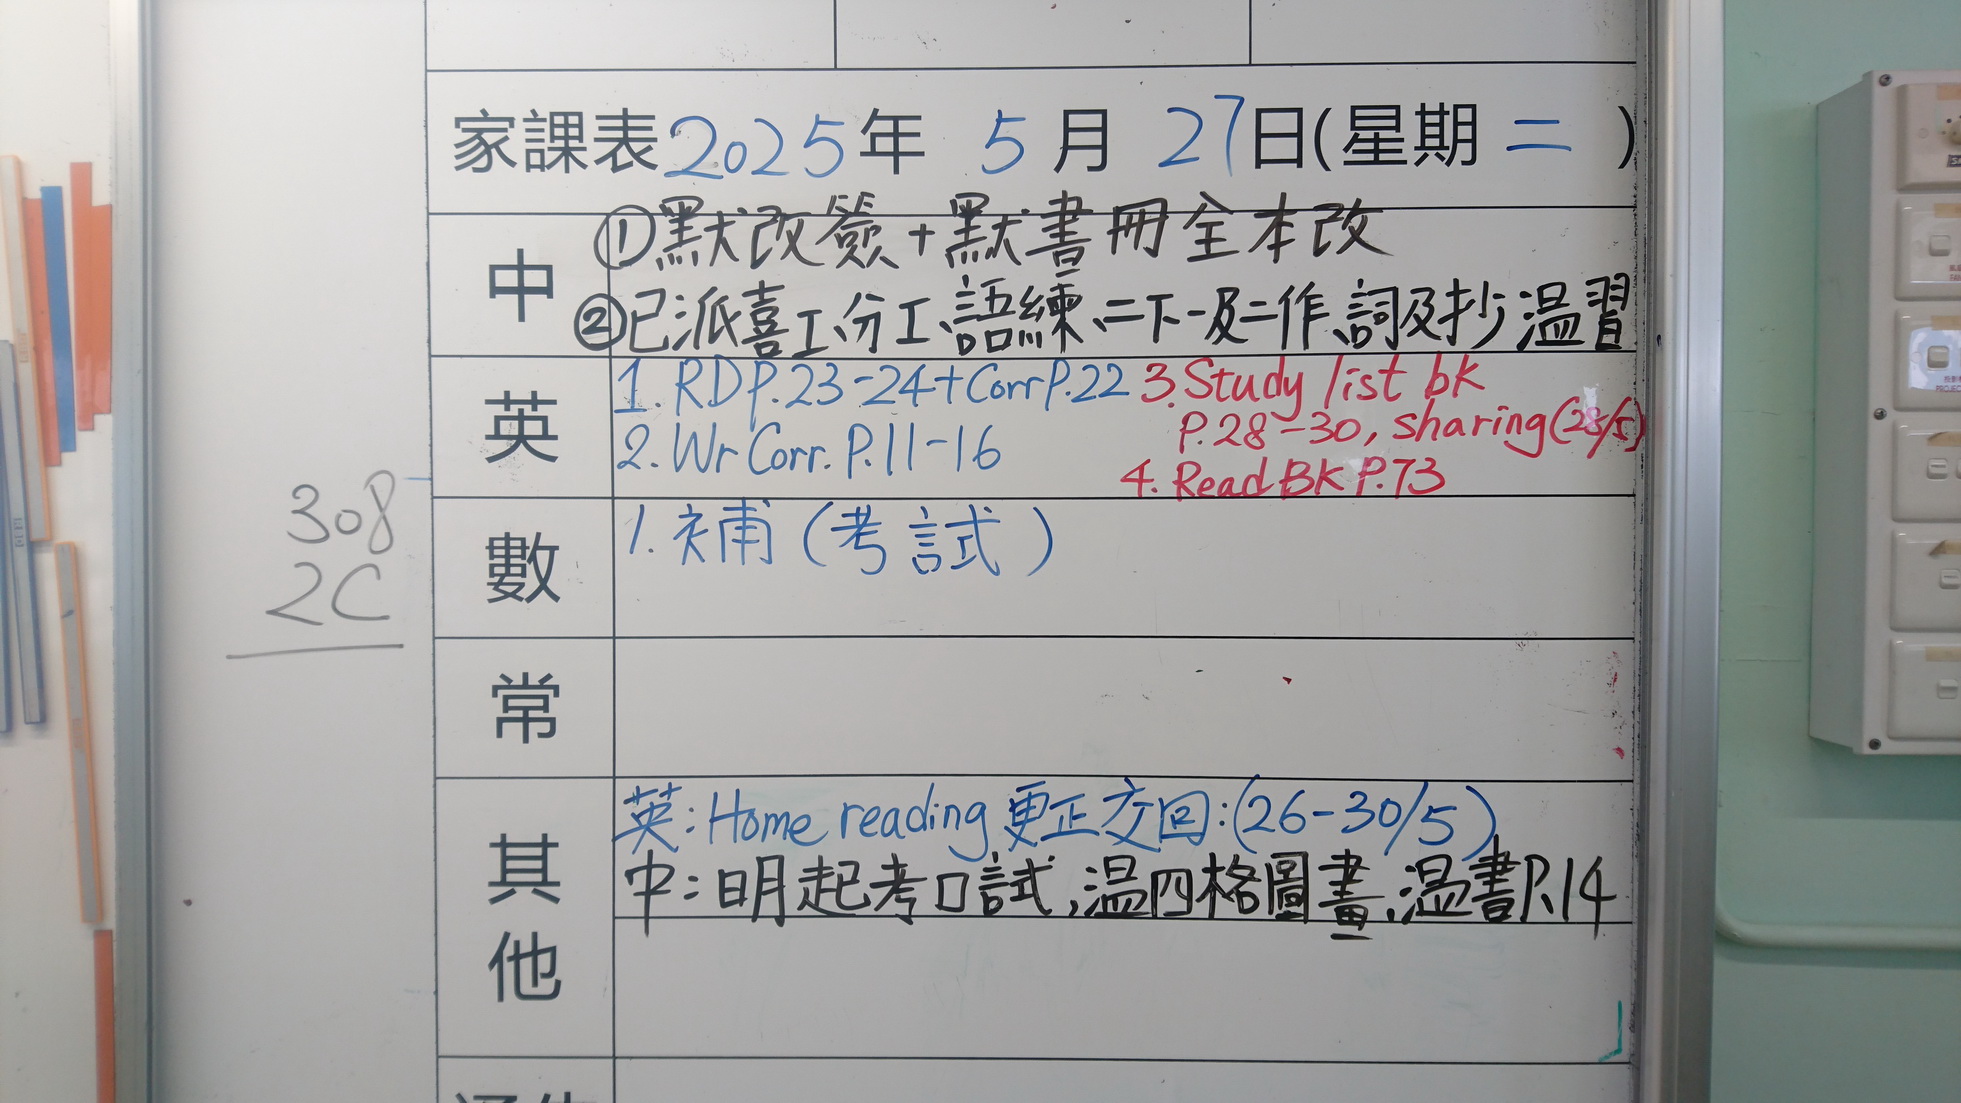 家課表2025年 5月 27日(星期二)
中
①默改簽+默書冊全本改
②已派喜工、分工、語練、二下一及二作、詞及抄溫習
英
1. RD P.23-24+Corr P.22
2. Wr Corr. P.11-16
3. Study list bk
P.28-30, sharing(28/5)
4. Read BK P.73
308
2C
數
1. 補(考試)
常
其他
英:Home reading 更正交回:(26-30/5)
中:明起考口試,溫四格圖畫,溫書P.14